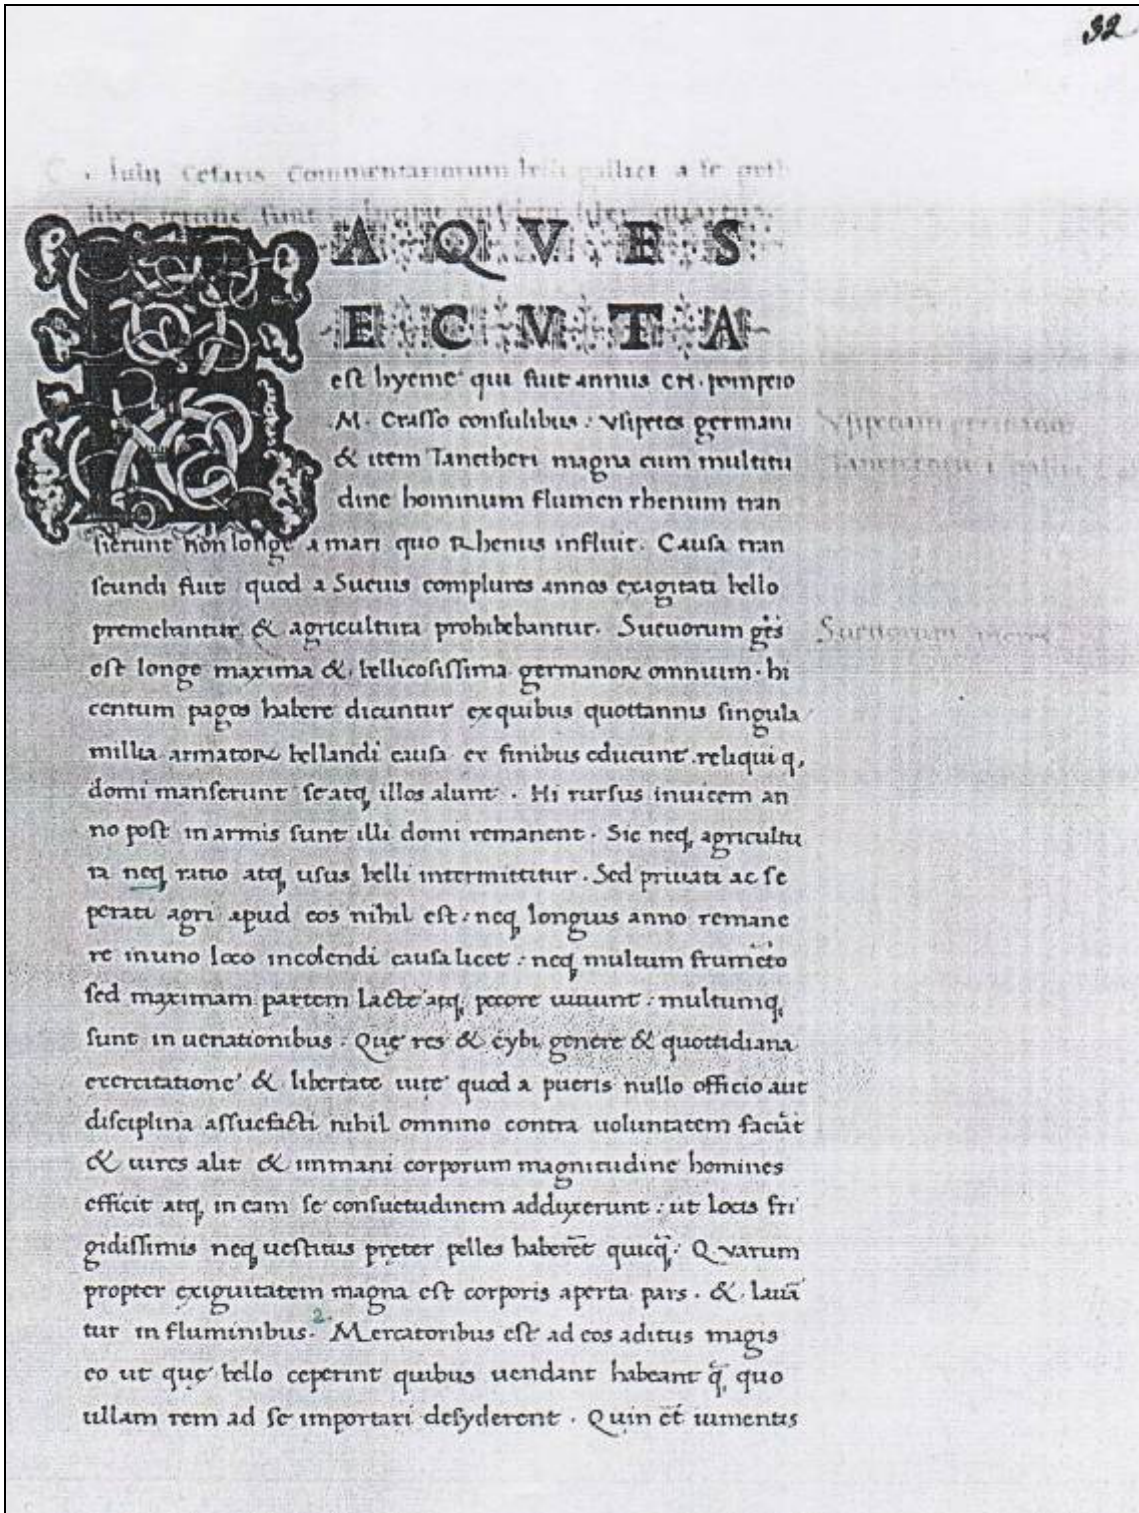 32
Iulij Cesaris Commentariorum belli gallici a se
liber quartus.
E A Q V E S
E C V T A
est hyeme qui fuit annus CN. pompeio
M. Crasso consulibus: Vsipetes germani
& item Tanctheri magna cum multitu
dine hominum flumen rhenum tran
sierunt non longe a mari quo Rhenus influit. Causa tran
seundi fuit quod a Sueuis complures annos exagitati bello
premebantur & agricultura prohibebantur. Sueuorum gẽs
est longe maxima & bellicosissima germanoꝝ omnium. hi
centum pagos habere dicuntur exquibus quottannis singula
millia armatoꝝ bellandi causa ex finibus educunt reliqui q,
domi manserunt se atq, illos alunt. Hi rursus inuicem an
no post in armis sunt illi domi remanent. Sic neq, agricultu
ra neq, ratio atq, usus belli intermittitur. Sed priuati ac se
perati agri apud eos nihil est: neq, longius anno remane
re inuno loco incolendi causa licet: neq, multum frumẽto
sed maximam partem lacte atq, pecore uiuunt: multumq,
sunt in uenationibus. Quę res & cybi genere & quottidiana
exercitatione & libertate uitę quod a pueris nullo officio aut
disciplina assuefacti nihil omnino contra uoluntatem faciãt
& uires alit & immani corporum magnitudine homines
efficit atq, in eam se consuetudinem adduxerunt: ut locis fri
gidissimis neq, uestitus pręter pelles haberẽt quicq̃. Quarum
propter exiguitatem magna est corporis aperta pars. & lauã
tur in fluminibus. 2 Mercatoribus est ad eos aditus magis
eo ut quę bello ceperint quibus uendant habeant q̃, quo
ullam rem ad se importari desyderent. Quin et̃ iumentis
Sueuorum mores